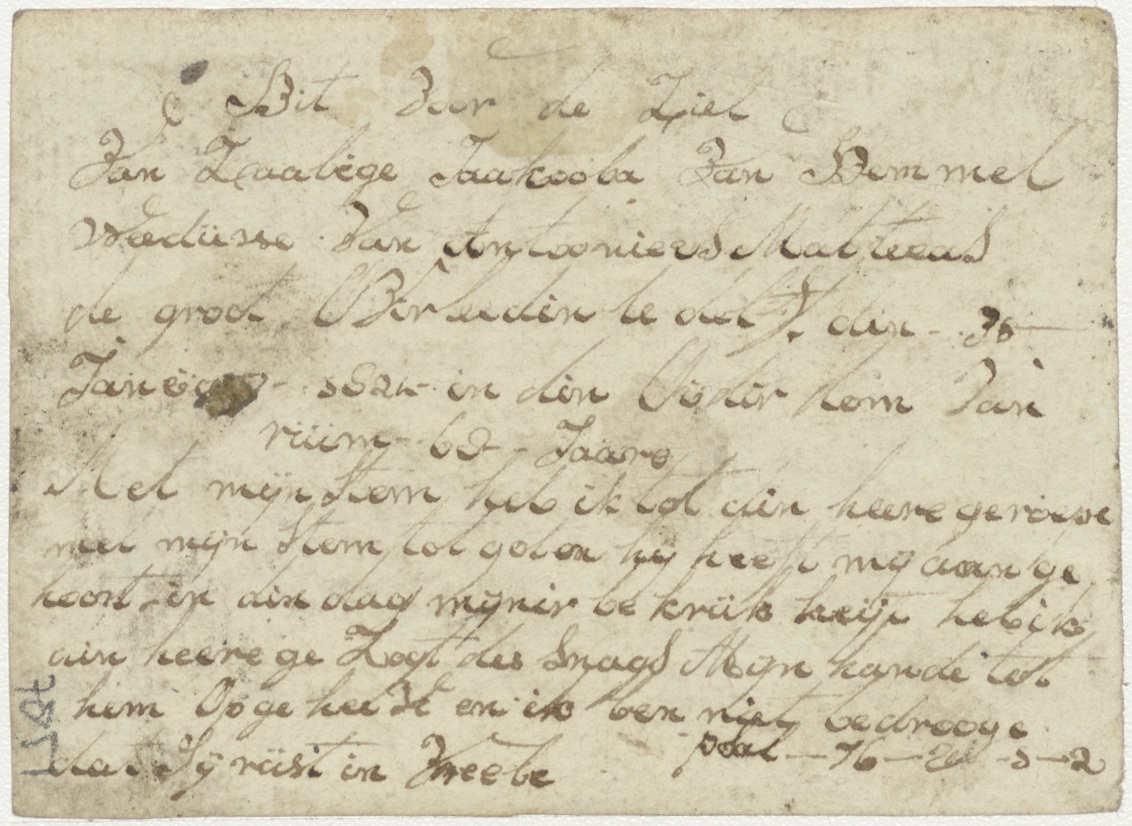 Bit Voor de Ziel
Van Zaalige Jaakooba Van Bommel
Weedüwe Van Antooniees Matteeus
de groot Oorleedin te
Janew 1824 in din Oüdir dom Van
rüim 62 Jaare
Met mijn stem heb ik tot din heere geroepe
met mijn stem tot got en hy heeft my aan ge
hoort in din dag mijnir be krük heijt heb ik
din heere ge Zogt des snags Mijn hande tot
hem Opge heeve en ik ben niet bedrooge
dat Sy rüst in Vreebe
psal 76 2 3 2